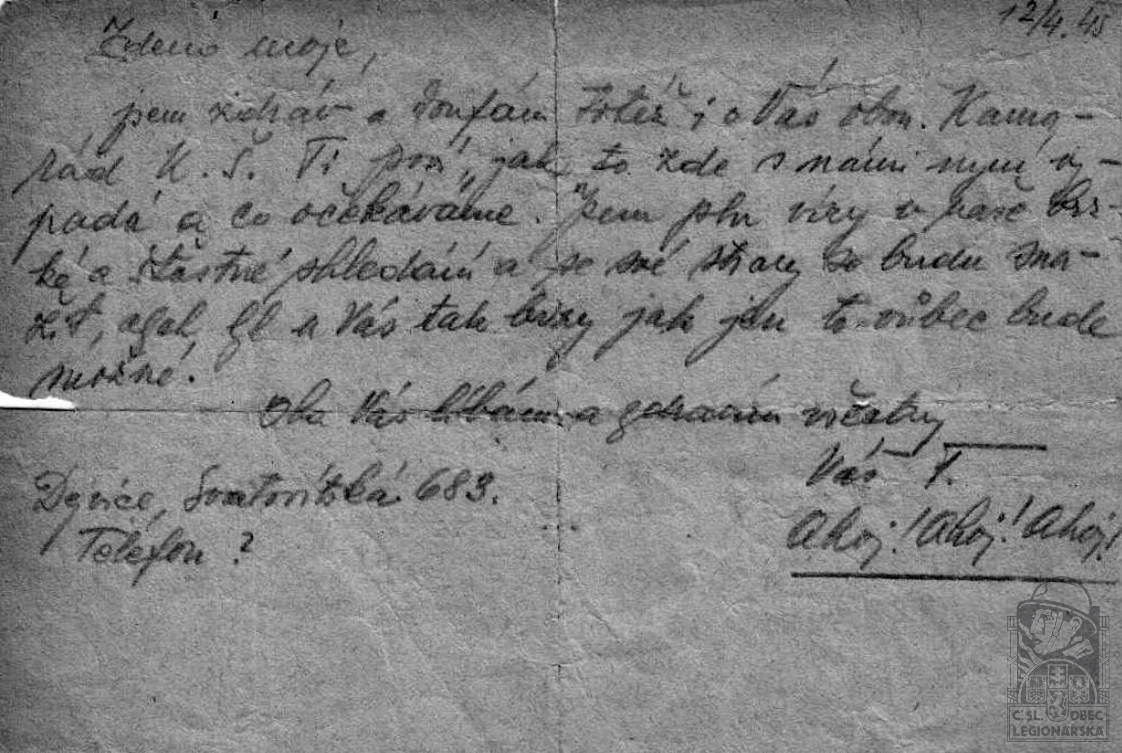 12/4. 45
Zdeno moje,
jsem zdráv a doufám totéž i o Vás obou. Kama-
rád K. Š. Ti poví, jak to zde s námi nyní vy-
padá a co očekáváme. Jsem pln víry v naše brz-
ké a šťastné shledání a se své strany se budu sna-
žit, abych byl u Vás tak brzy jak jen to vůbec bude
možné.
Oba Vás líbám a zdravím všechny
Váš F.
Dejvice, Svatovítská 683.
Telefon ?
Ahoj! Ahoj! Ahoj!
ČSL. OBEC
LEGIONÁŘSKÁ